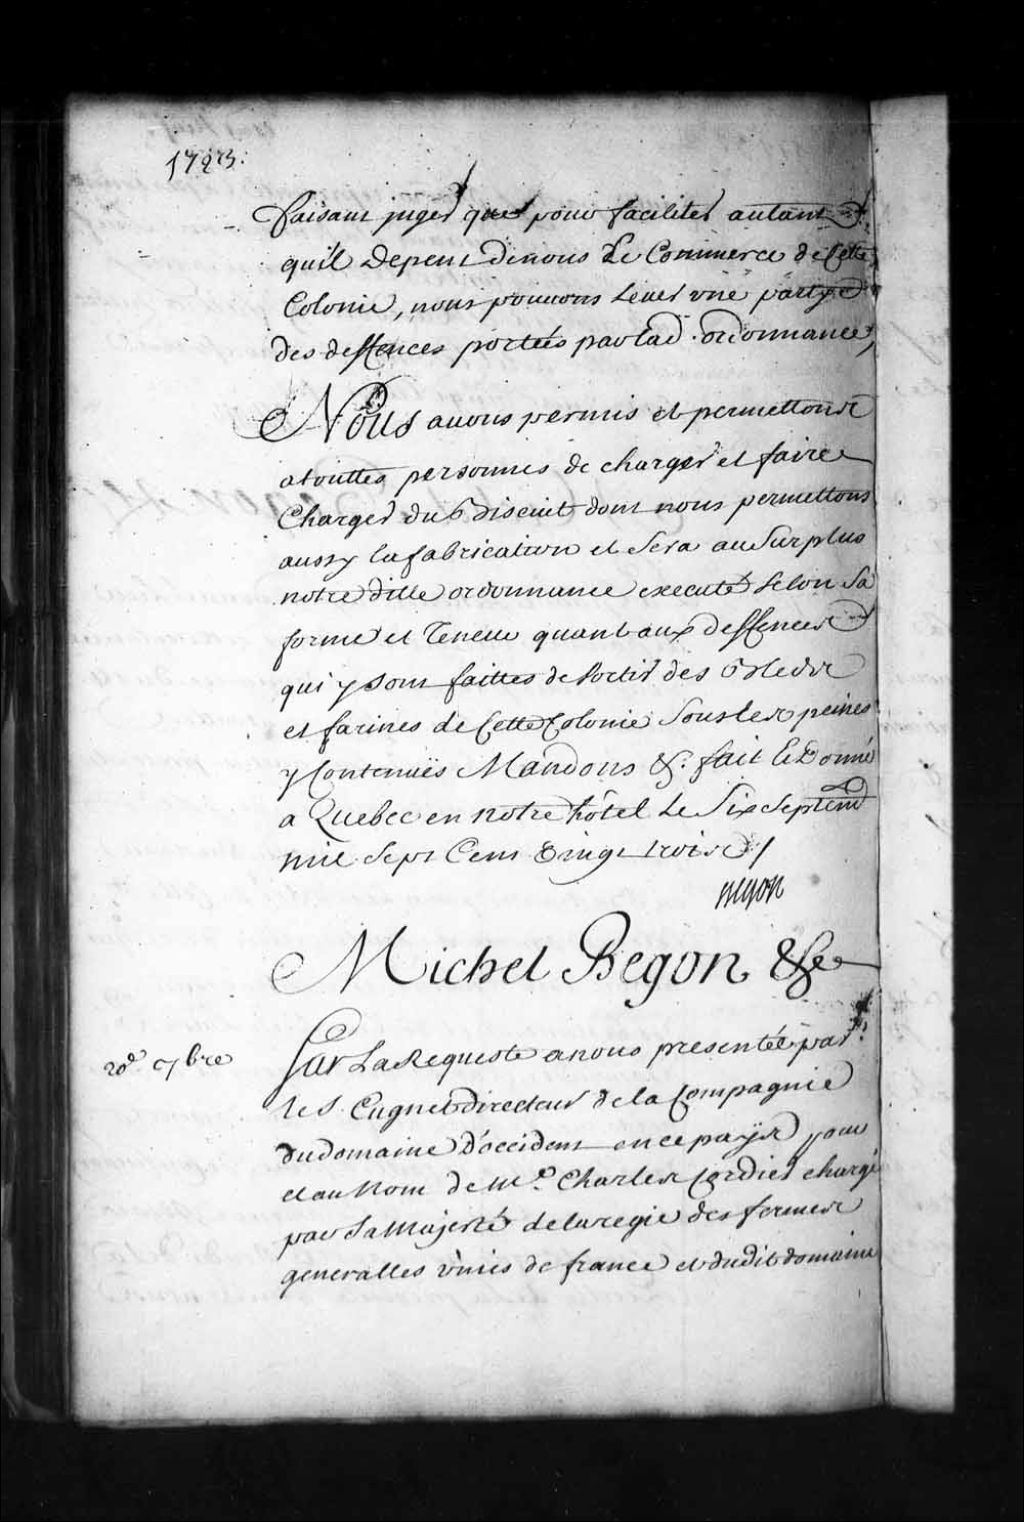 1723.
faisant juger que pour faciliter autant
qu'il depent de nous Le Commerce de Cette
Colonie, nous pouuons leuer vne partye
des deffences portées par lad. ordonnance,
Nous auons permis et permettons
a touttes personnes de charger et faire
Charger du biscuit dont nous permettons
aussy la fabrication et sera au surplus
notre ditte ordonnance executé selon sa
forme et Teneur quant aux deffences
qui y sont faittes de sortir des bleds
et farines de Cette Colonie sous les peines
y Contenuës Mandons &c. fait Et Donné
a Quebec en notre hôtel Le Six Septem
mil Sept Cent Vingt trois /
Begon
Michel Begon &c
20e. 7bre
Sur La Requeste a nous presentée par
le S. Cugnet directeur de la Compagnie
du domaine d'occident en ce pays pour
et au Nom de Me. Charles Cordier chargé
par Sa Majesté de la regie des fermes
generalles vnies de france et dudit domaine